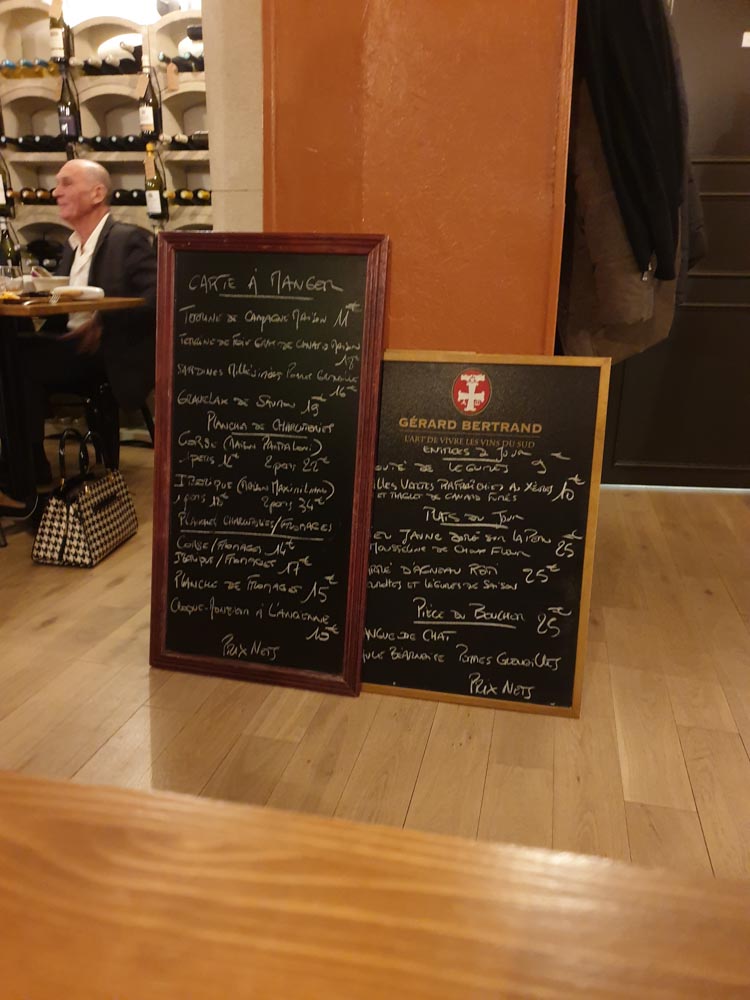 CARTE À MANGER
TERRINE DE CAMPAGNE MAISON 11€
TERRINE DE FOIE GRAS DE CANARD MAISON
SARDINES MILLÉSIMÉES
16€
GRAVELAX DE SAUMON 19€
PLANCHA DE CHARCUTERIES
CORSE (MAISON
1 pers 2 pers 22€
IBERIQUE (MAISON
1 pers 18€ 2 pers 34€
PLANCHES CHARCUTERIES/FROMAGES
CORSE/FROMAGES 14€
IBERIQUE/FROMAGES 17€
PLANCHE DE FROMAGES 15€
CROQUE-MONSIEUR À L'ANCIENNE
10€
PRIX NETS
GÉRARD BERTRAND
L'ART DE VIVRE LES VINS DU SUD
ENTRÉES DU JOUR
OUTÉ DE LÉGUMES 9€
LLES VERTES RAFRAÎCHIES AU XÉRÈS 10€
ET MAGRET DE CANARD FUMÉS
PLATS DU JOUR
EU JAUNE DORÉ SUR LA PEAU 25€
MOUSSELINE DE CHOUX FLEUR
D'AGNEAU RÔTI 25€
ET LÉGUMES DE SAISON
PIÈCE DU BOUCHER 25€
ANGUE DE CHAT
UCE BÉARNAISE POMMES GRENAILLES
PRIX NETS